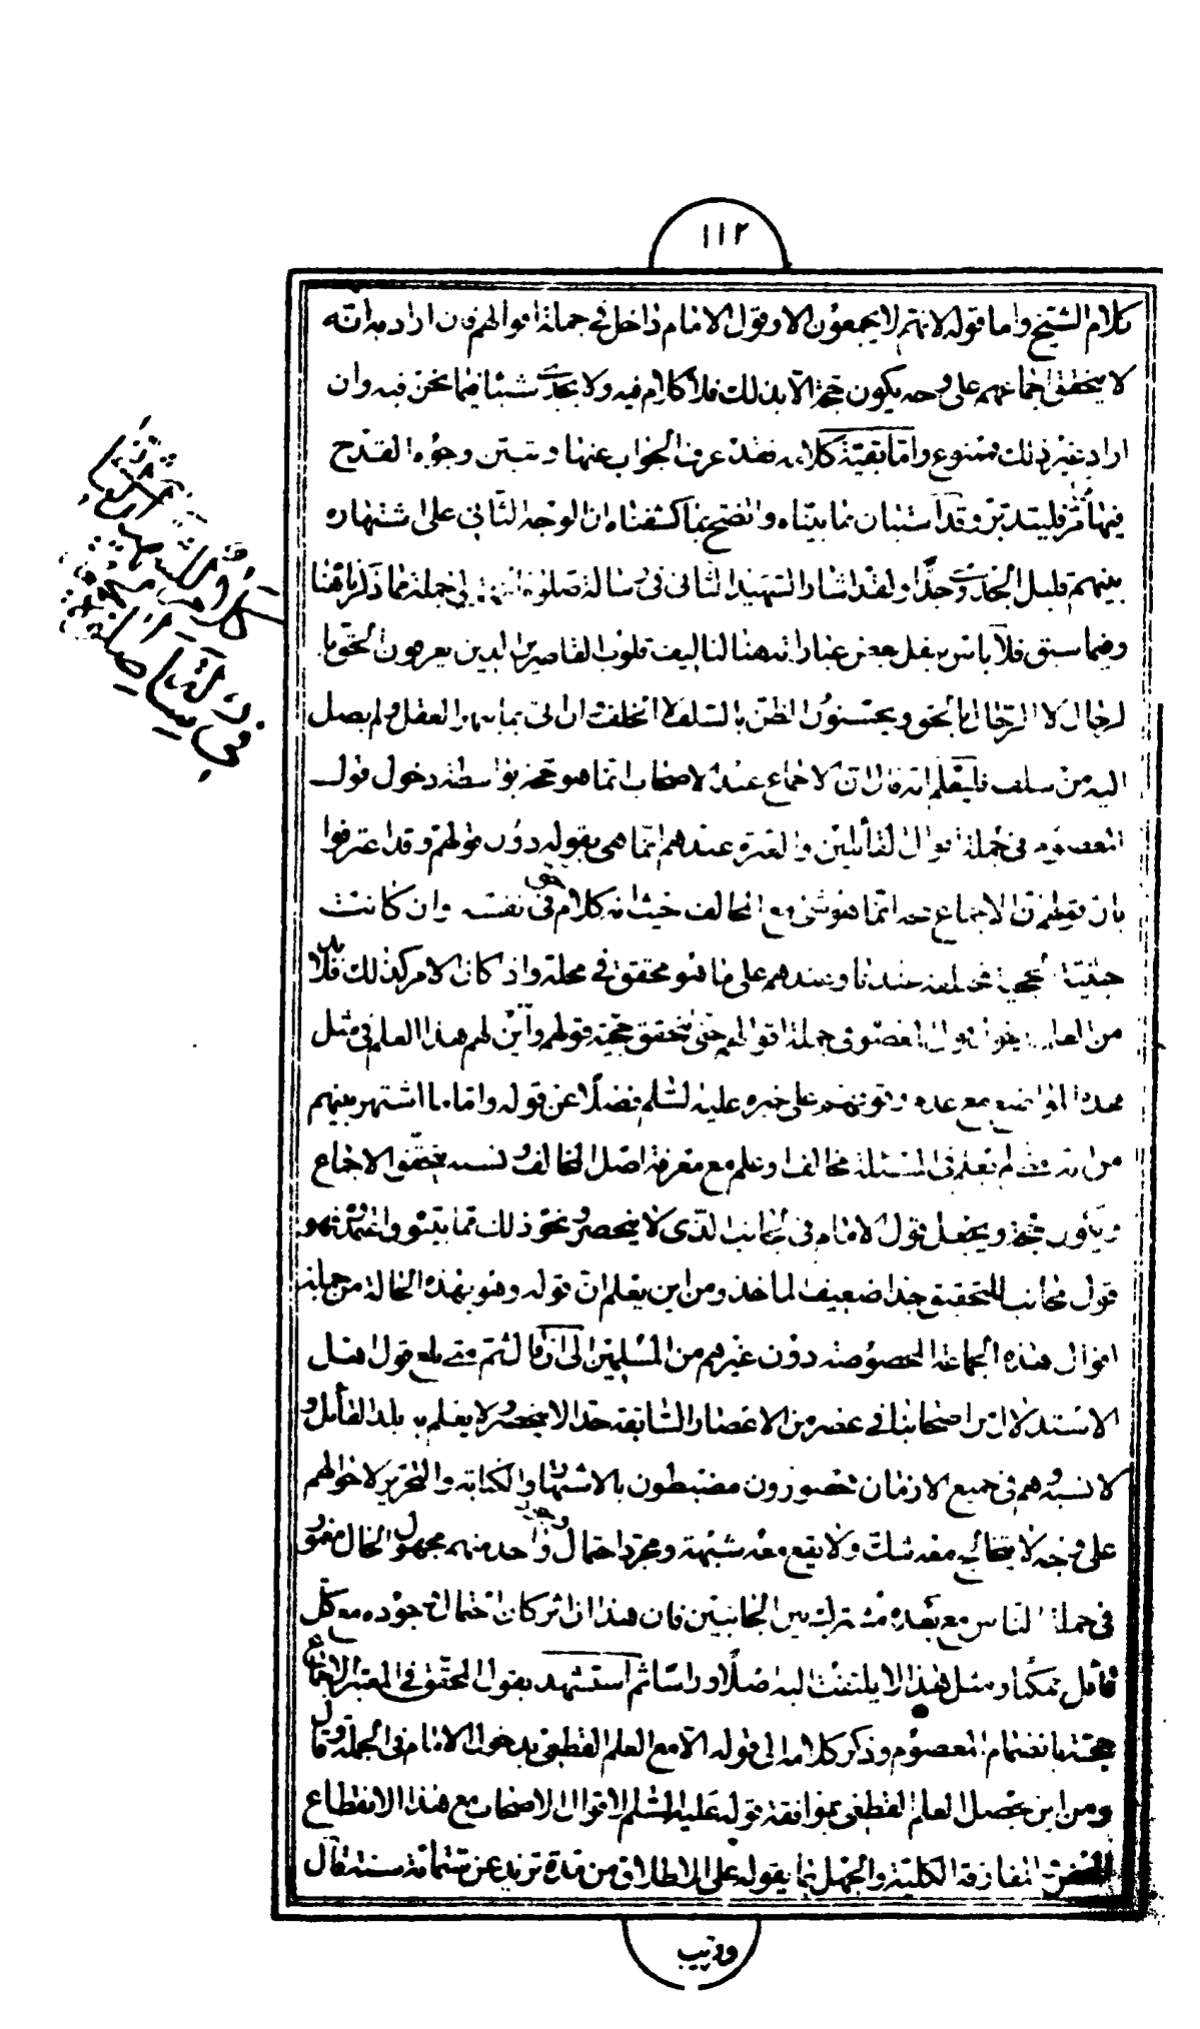 ١١٢
كلام الشيخ واما قوله لانهم لا يجمعون الا وقول الامام داخل في جملة اقوالهم فان اراد به انه
لا يتحقق اجماعهم على وجه يكون حجة الا بذلك فلا كلام فيه ولا يجدي شيئا فيما نحن فيه وان
اراد غير ذلك فممنوع واما بقية كلامه فقد عرف الجواب عنها وتبين وجوه القدح
فيها ثم فليتدبر وقد استبان مما بيناه واتضح بما كشفناه ان الوجه الثاني على اشتهاره
بينهم قليل الجدوى جدا ولقد اشار الشهيد الثاني في رسالة صلوة الى جملة مما ذكرنا هنا
وفيما سبق فلا باس بنقل بعض عباراته هنا لتاليف قلوب القاصرين الذين يعرفون الحق با
لرجال لا الرجال بالحق ويحسنون الظن بالسلف لا الخلف ان اتى بما بهر العقل ولم يصل
اليه من سلف فليعلم انه قال ان الاجماع عند الاصحاب انما هو حجة بواسطة دخول قول
المعصوم في جملة اقوال القائلين والعبرة عندهم انما هي بقوله دون قولهم وقد اعترفوا
بان قولهم ان الاجماع حجة انما هو مشي مع المخالف حيث انه كلام حق في نفسه وان كانت
حيثية الحجية مختلفة عندنا وعندهم على ما هو محقق في محله واذا كان الامر كذلك فلا بد
من العلم بدخول قول المعصوم في جملة اقوالهم حتى يتحقق حجية قولهم واين لهم هذا العلم في مثل
هذه المواضع مع عدم وقوفهم على خبره عليه السلم فضلا عن قوله واما ما اشتهر بينهم
من انه متى لم يعلم في المسئلة مخالف او علم مع معرفة اصل المخالف ونسبه يتحقق الاجماع
ويكون حجة ويجعل قول الامام في الجانب الذي لا ينحصر ونحو ذلك مما بينوه واعتمدوه فهو
قول مجانب للتحقيق جدا ضعيف الماخذ ومن اين يعلم ان قوله وهو بهذه الحالة من جملة
اقوال هذه الجماعة المخصوصة دون غيرهم من المسلمين الى ان قال ثم متى بلغ قول اهل
الاستدلال من اصحابنا في عصر من الاعصار السابقة حدا لا ينحصر ولا يعلم به بلد القائل و
لا نسبه وهم في جميع الازمان محصورون مضبطون بالاشتهار والكتابة والتحرير لاحوالهم
على وجه لا يتخالجه معه شك ولا يقع معه شبهة ومجرد احتمال وجود واحد منهم مجهول الحال مغمور
في جملة الناس مع بعده مشترك بين الجانبين فان هذا ان اثر كان احتمال وجوده مع كل
قائل ممكنا ومثل هذا لا يلتفت اليه اصلا وراسا ثم استشهد بقول المحقق في المعتبر الاجماع
حجة بانضمام المعصوم وذكر كلامه الى قوله الا مع العلم القطعي بدخول الامام في الجملة وقال
ومن اين يحصل العلم القطعي بموافقة قوله عليه السلم لاقوال الاصحاب مع هذا الانقطاع
المحض والمفارقة الكلية والجهل بما يقوله على الاطلاق من مدة تزيد عن ستمائة سنة قال
وقريب
كلام للشهيد الثاني
في رسالة